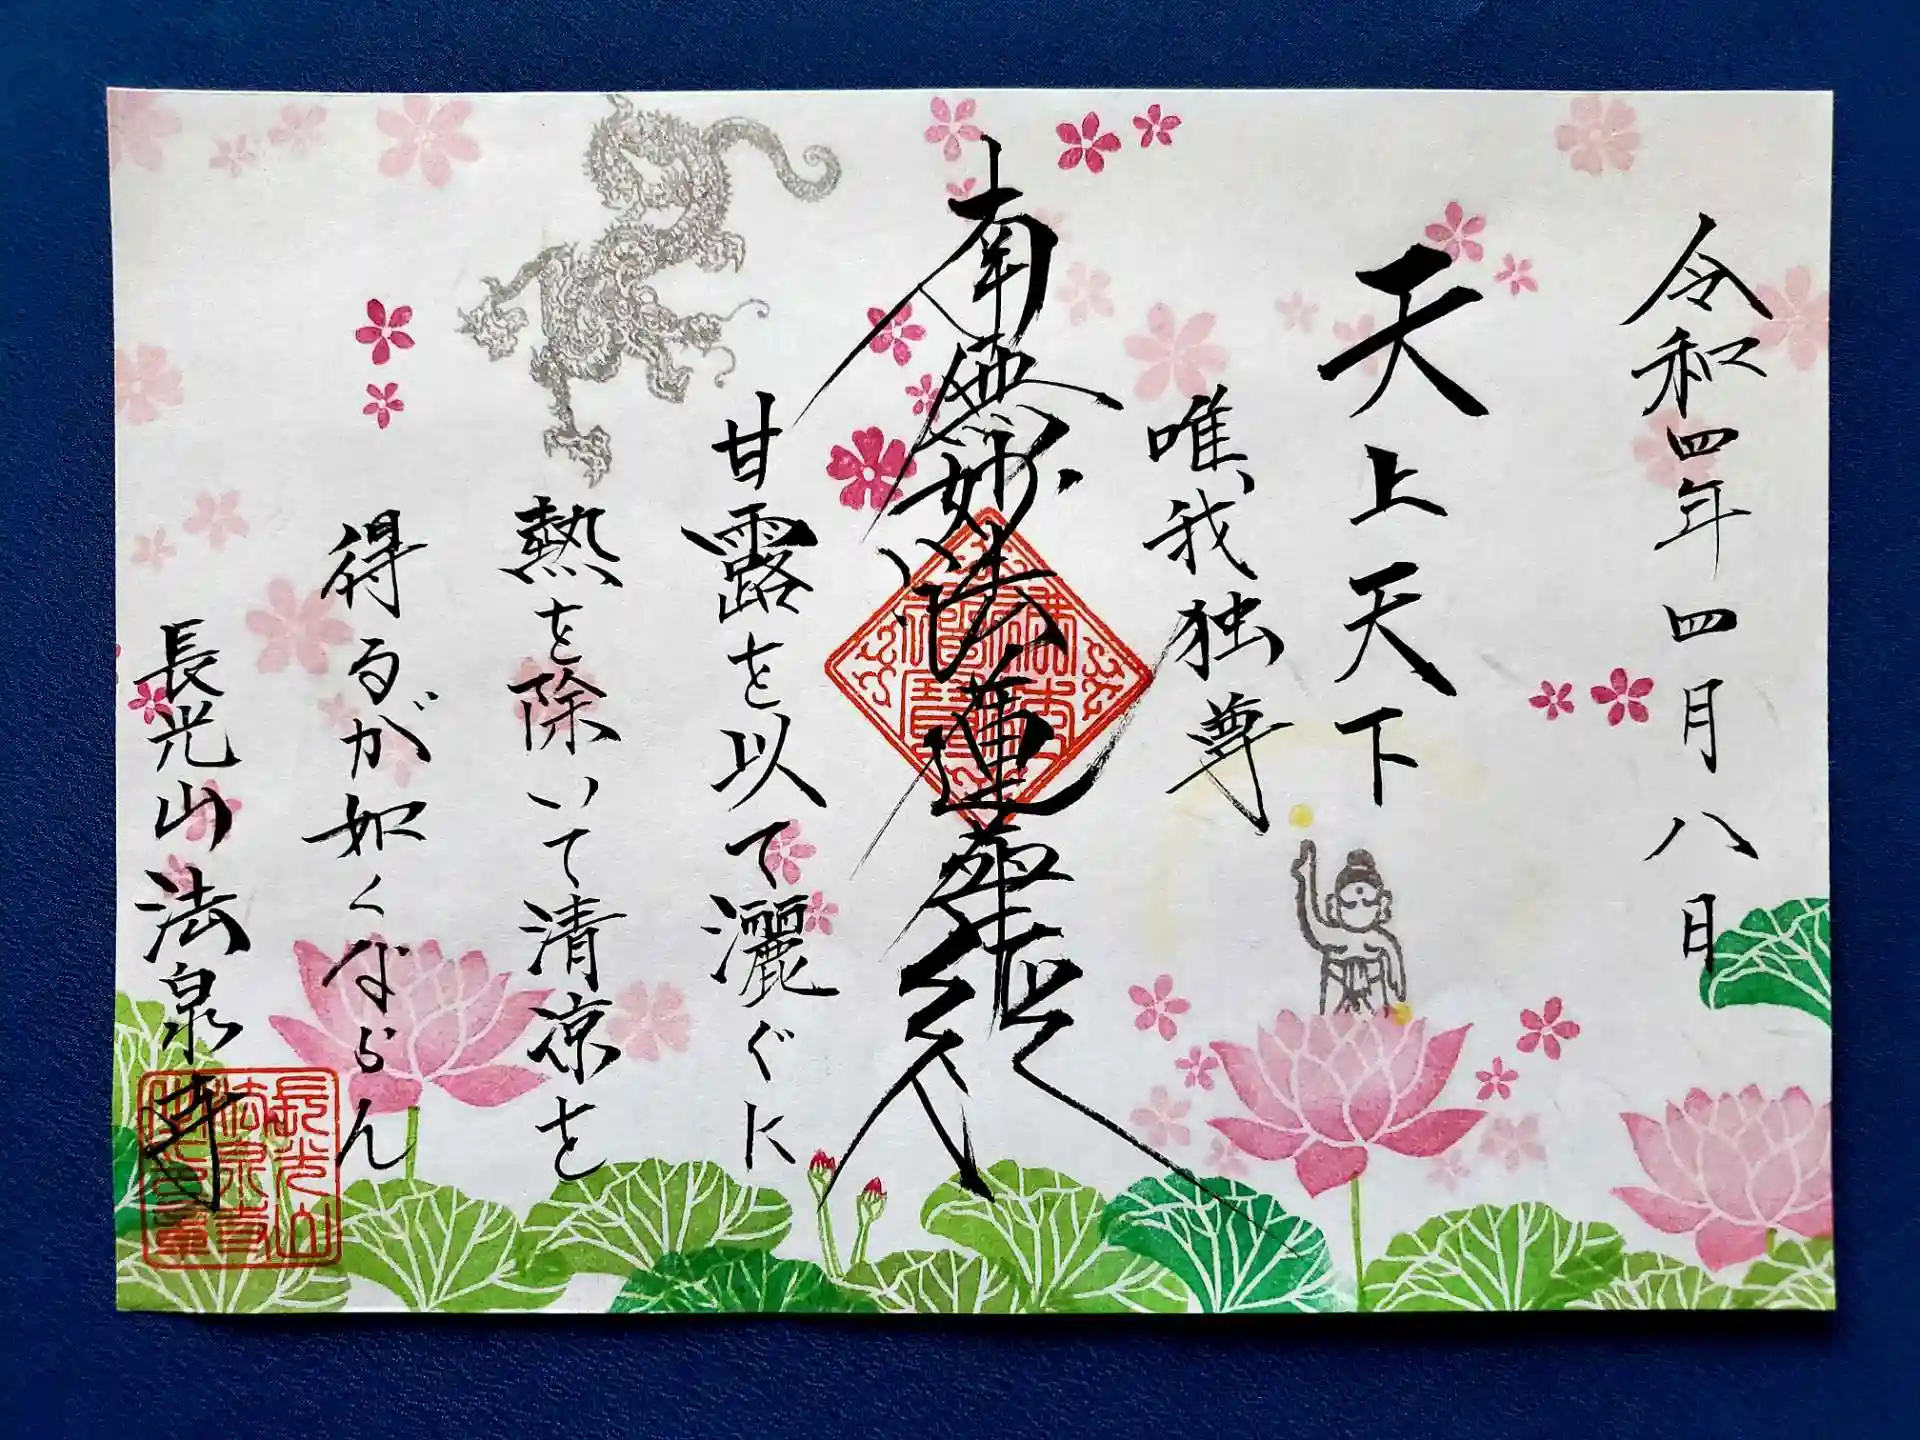 令和四年四月八日
天上天下
唯我独尊
南無妙法蓮華経
甘露を以て灑ぐに
熱を除いて清凉を
得るが如くならん
長光山法泉寺
長光山
法泉寺